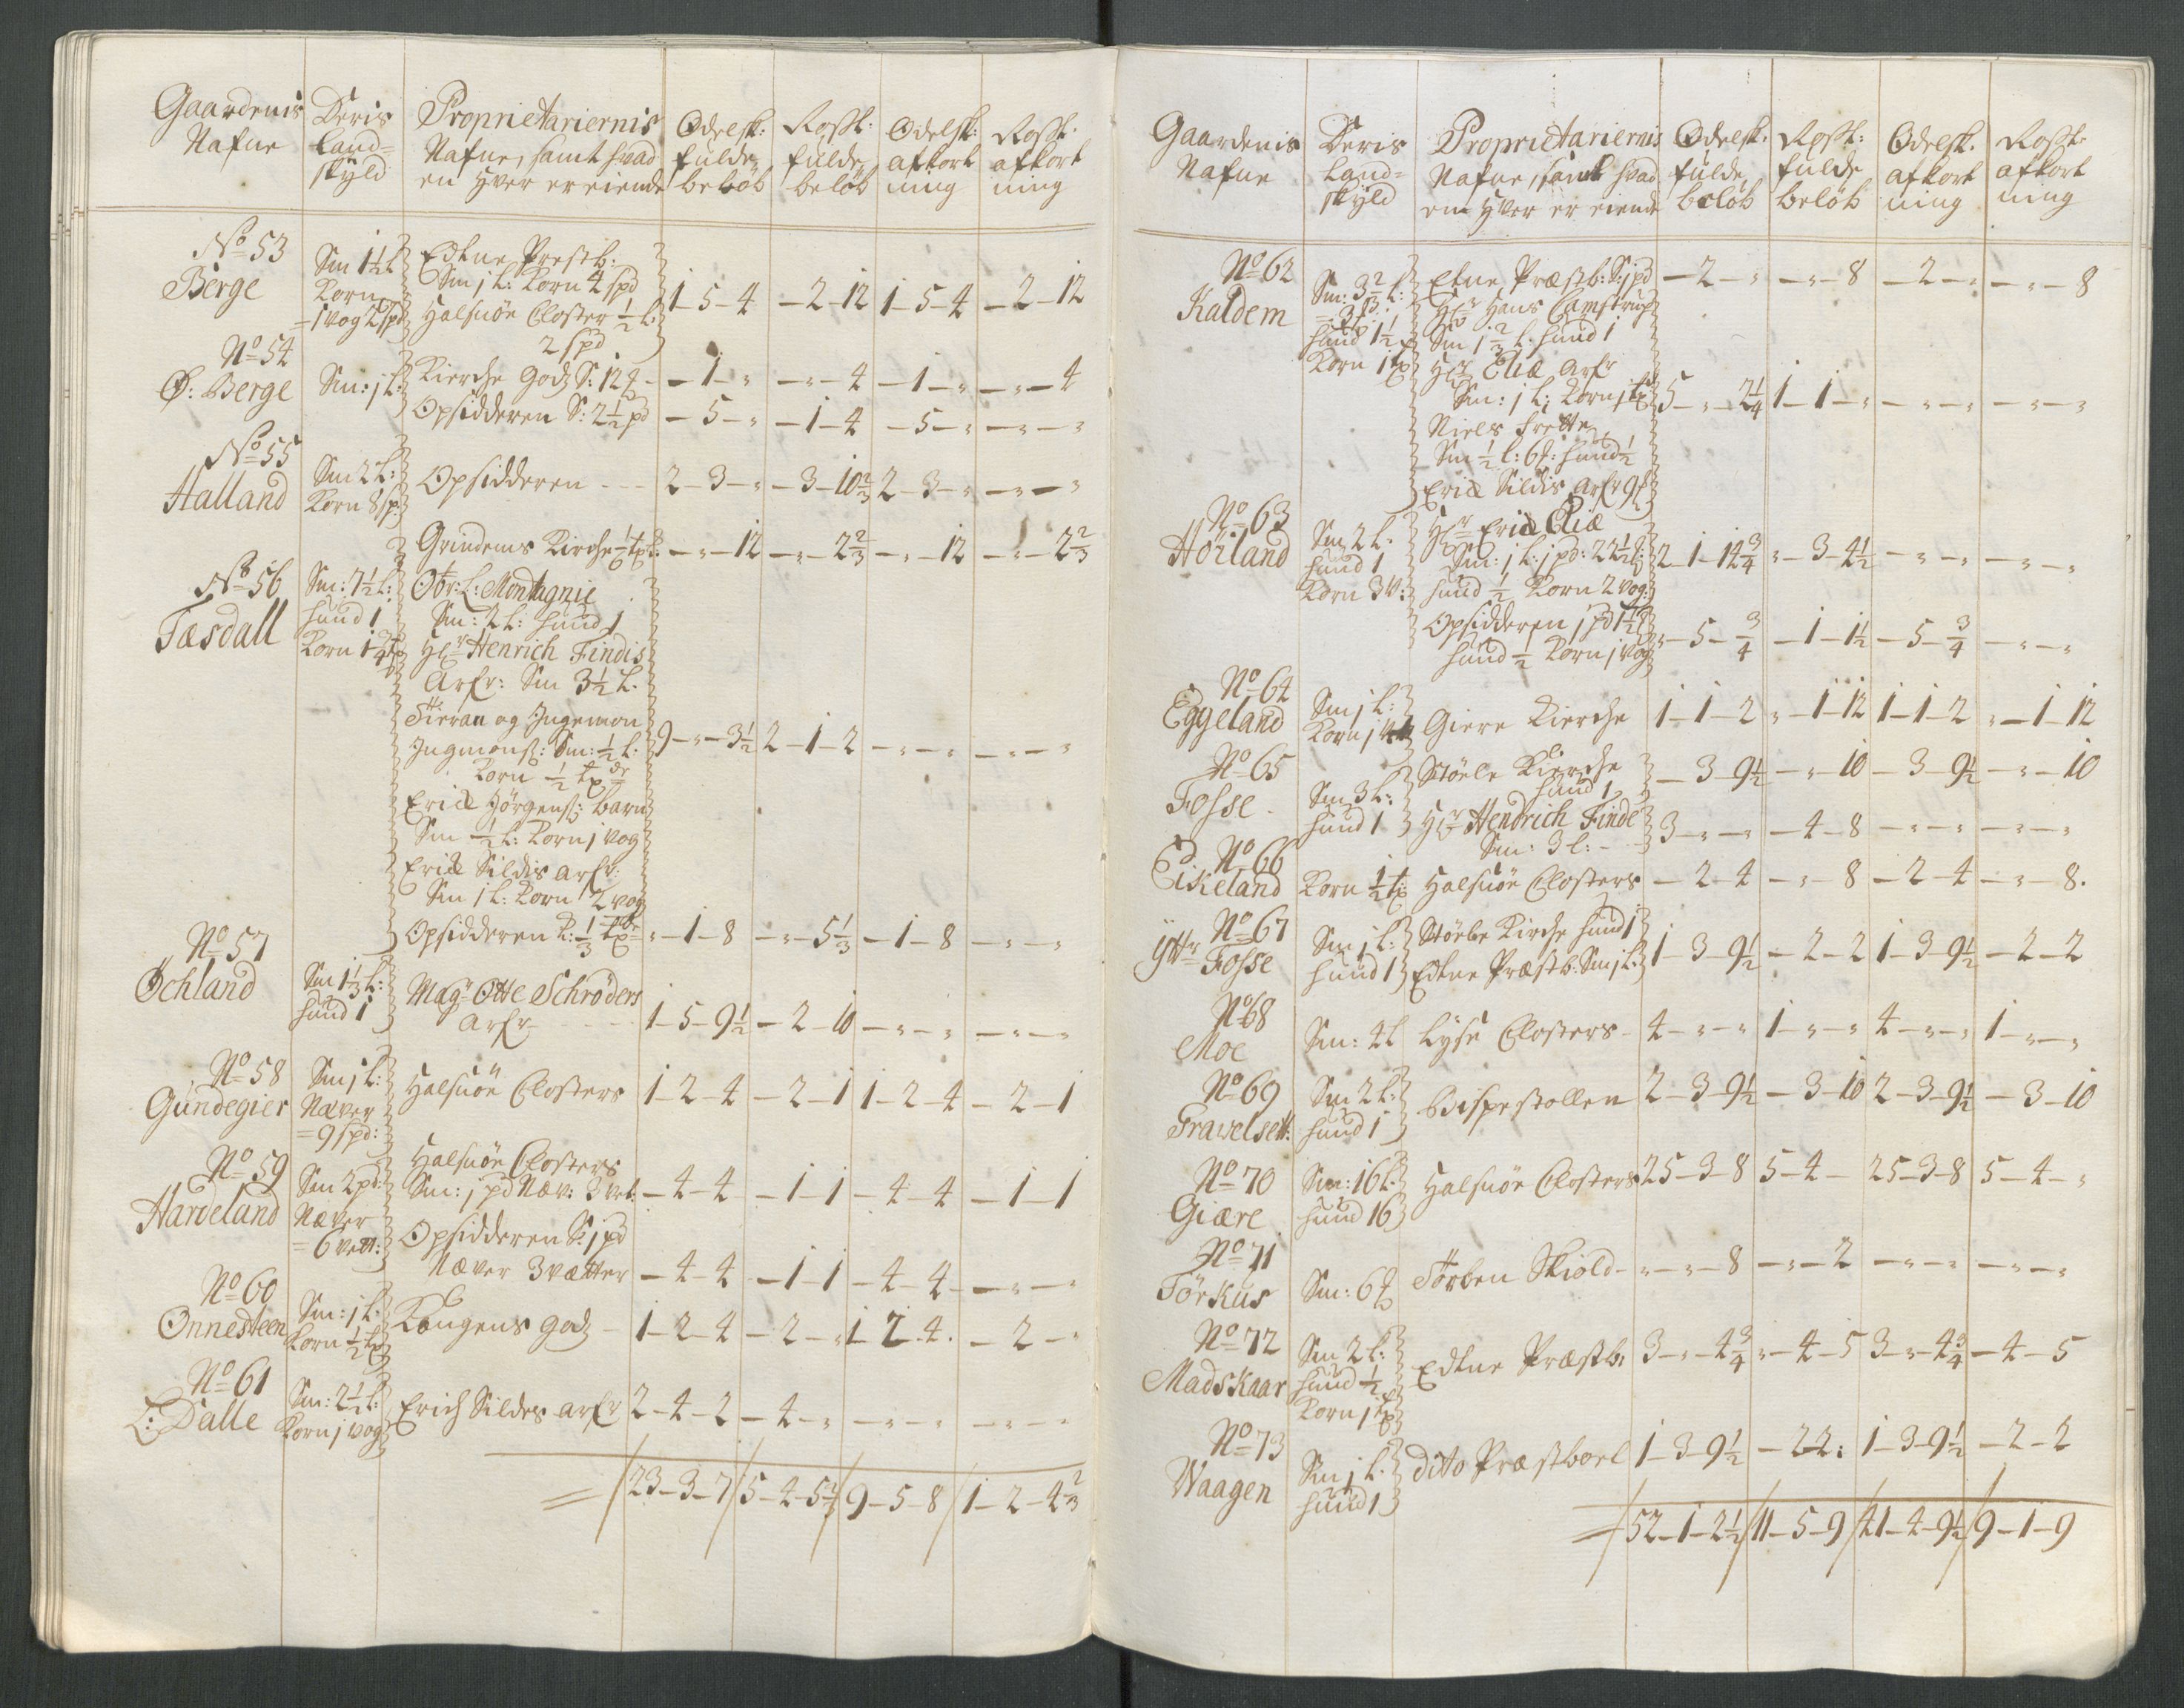 Gaardenis Nafne
Deris Land= skyld
Proprietariernis Nafne, samt hvad en hver er eiende
Odelsk: fulde beløb
Rosst: fulde beløb
Odelsk: afkort ning
Rosst: afkort ning
No 53
Berge
Sm 1½ L
Korn
=1 vog 2 spd
Edtne Prestb:
Sm j L: Korn 4 spd
Halsnöe Closter ½ L:
2 spd
1-5-4 -2-12 1-5-4 -2-12
No 54
Ø: Berge
Sm: j L:
Kierche godz S: 12 -1-" -"-4 -1-" -"-4
Opsidderen S: 2½ pd -5-" -1-4 -5-" -"-"
No 55
Halland
Sm 2 L:
Korn 8 sp:
Opsidderen 2-3-" -3-10⅔ 2-3-" -"-"
Grindems Kirche -"-12 -"-2⅔ -"-12 -"-2⅔
No 56
Tæsdall
Sm: 7½ L:
hund 1
Korn 1
Obr: L: Montagnie
Sm: 2 L: hund 1
Hr Henrich Findis
Arfr: Sm 3½ L.
Sieran og Ingemon
Ingmonss: Sm: ½ L.
Korn ½
9-"-3½ 2-1-2 -"-" -"-"
Erick Hörgenss: barn
Sm ½ L: Korn j vog
Erick Sildis arfr:
Sm j L: Korn 2 vog
Opsidderen K: ⅓ "-1-8 -"-5⅓ -1-8 -"-"
No 57
Ochland
Sm 1⅓ L:
hund 1
Magr Otte Schrøders
Arfr 1-5-9½ -2-10 -"-" -"-"
No 58
Gundegier
Sm j L:
Næver
=9 spd:
Halsnöe Closters 1-2-4 -2-1 1-2-4 -2-1
No 59
Hardeland
Sm 2 pd:
Næver
=6 vett:
Halsnöe Closters
Sm: j pd Næv: 3 vet: -4-4 -1-1 -4-4 -1-1
Opsidderen S: j pd
Næver 3 vætter -4-4 -1-1 -4-4 -"-"
No 60
Onnesteen
Sm: j L:
Korn ½
Kongens godz 1-2-4 -2-" 1 2-4. -2-"
No 61
L: Dalle
Sm: 2½ L:
Korn j vog
Erich Sildes arfr 2-4-2 -4-" -"-" -"-"
= 23-3-7 5-4-5⅓ 9-5-8 1-2-4⅔
Gaardenis Nafne
Deris Land= skyld
Proprietariernis Nafne, samt hvad en hver er eiende
Odelsk: fulde beløb
Rosst: fulde beløb
Odelsk. afkort ning
Rosst: afkort ning
No 62
Kaldem
Sm: 3⅔ L:
hund 1½
Korn 1
Etne Præstb: S: j pd -2-" -"-8 -2-" -"-8
Hr Hans Camstrup
Sm 1⅔ L. hund 1
Hr Eliæ arfr
Sm: j L: Korn j 5-"-2¼ 1-1-" -"-" -"-"
Niels frette
Sm ½ L: 6 : hund ½
Erick Sildis arfr 9
No 63
Hörland
Sm 2 L.
hund 1
Korn 3 V:
Hr Erick Eliæ
Sm: j L: j pd: 22½
hund ½ Korn 2 vog:
2-1-14¾ "-3-4½ -"-" -"-"
Opsidderen j pd 1½
hund ½ Korn j vog
"-5-¾ -1-1½ -5-¾ -"-"
No 64
Eggeland
Sm j L:
Korn j
Giere Kierche 1-1-2 "-1-12 1-1-2 "-1-12
No 65
Fosse
Sm 3 L:
hund 1
Stöele Kierche
hund 1
-3-9½ -"-10 -3-9½ -"-10
Hr Hendrich Finde
Sm: 3 L: 3-"-" -4-8 -"-" -"-"
No 66
Eikeland
Korn ½
Halsnöe Closters -2-4 -"-8 -2-4 -"-8.
No 67
Yttr Fosse
Sm j L:
hund 1
Stöele Kirche hund 1
Edtne Præstb: Sm j L:
1-3-9½ -2-2 1-3-9½ -2-2
No 68
Moe
Sm: 4 L
Lyse Closters 4-"-" 1-"-" 4-"-" 1-"-"
No 69
Fravelsett:
Sm 2 L:
hund 1
Bispestollen 2-3-9½ -3-10 2-3-9½ -3-10
No 70
Giære
Sm: 16 L.
hund 16
Halsnöe Closters 25-3-8 5-4- 25-3-8 5-4-"
No 71
Törkus
Sm: 6
Torben Skiold "-"-8 -"-2 -"-" -"-"
No 72
Madskaar
Sm 2 L:
hund ½
Korn j
Edtne Præstb: 3-"-4¾ "-4-5 3-"-4¾ -4-5
No 73
Waagen
Sm j L.
hund 1
dito Præstboel 1-3-9½ -2-2: 1-3-9½ -2-2
= 52-1-2½ 11-5-9 41-4-9½ 9-1-9